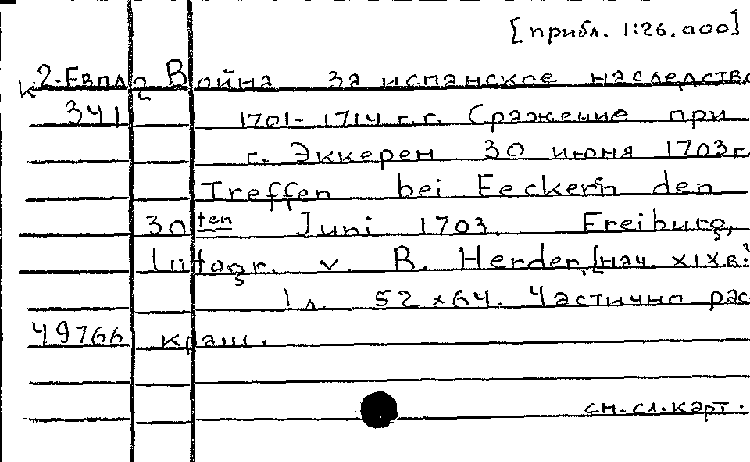 [прибл. 1:26.000]
К 2-Евпло Война за испанское наследство
341 1701-1714 г.г. Сражение при
г. Эккерен 30 июня 1703 г.
Treffen bei Eeckerin den
30 ten Juni 1703. Freiburg,
Litogr. v. B. Herder, [нач. XIX в.]
1 л. 52 x 64. Частично рас
49766 краш.
см. сл. карт.